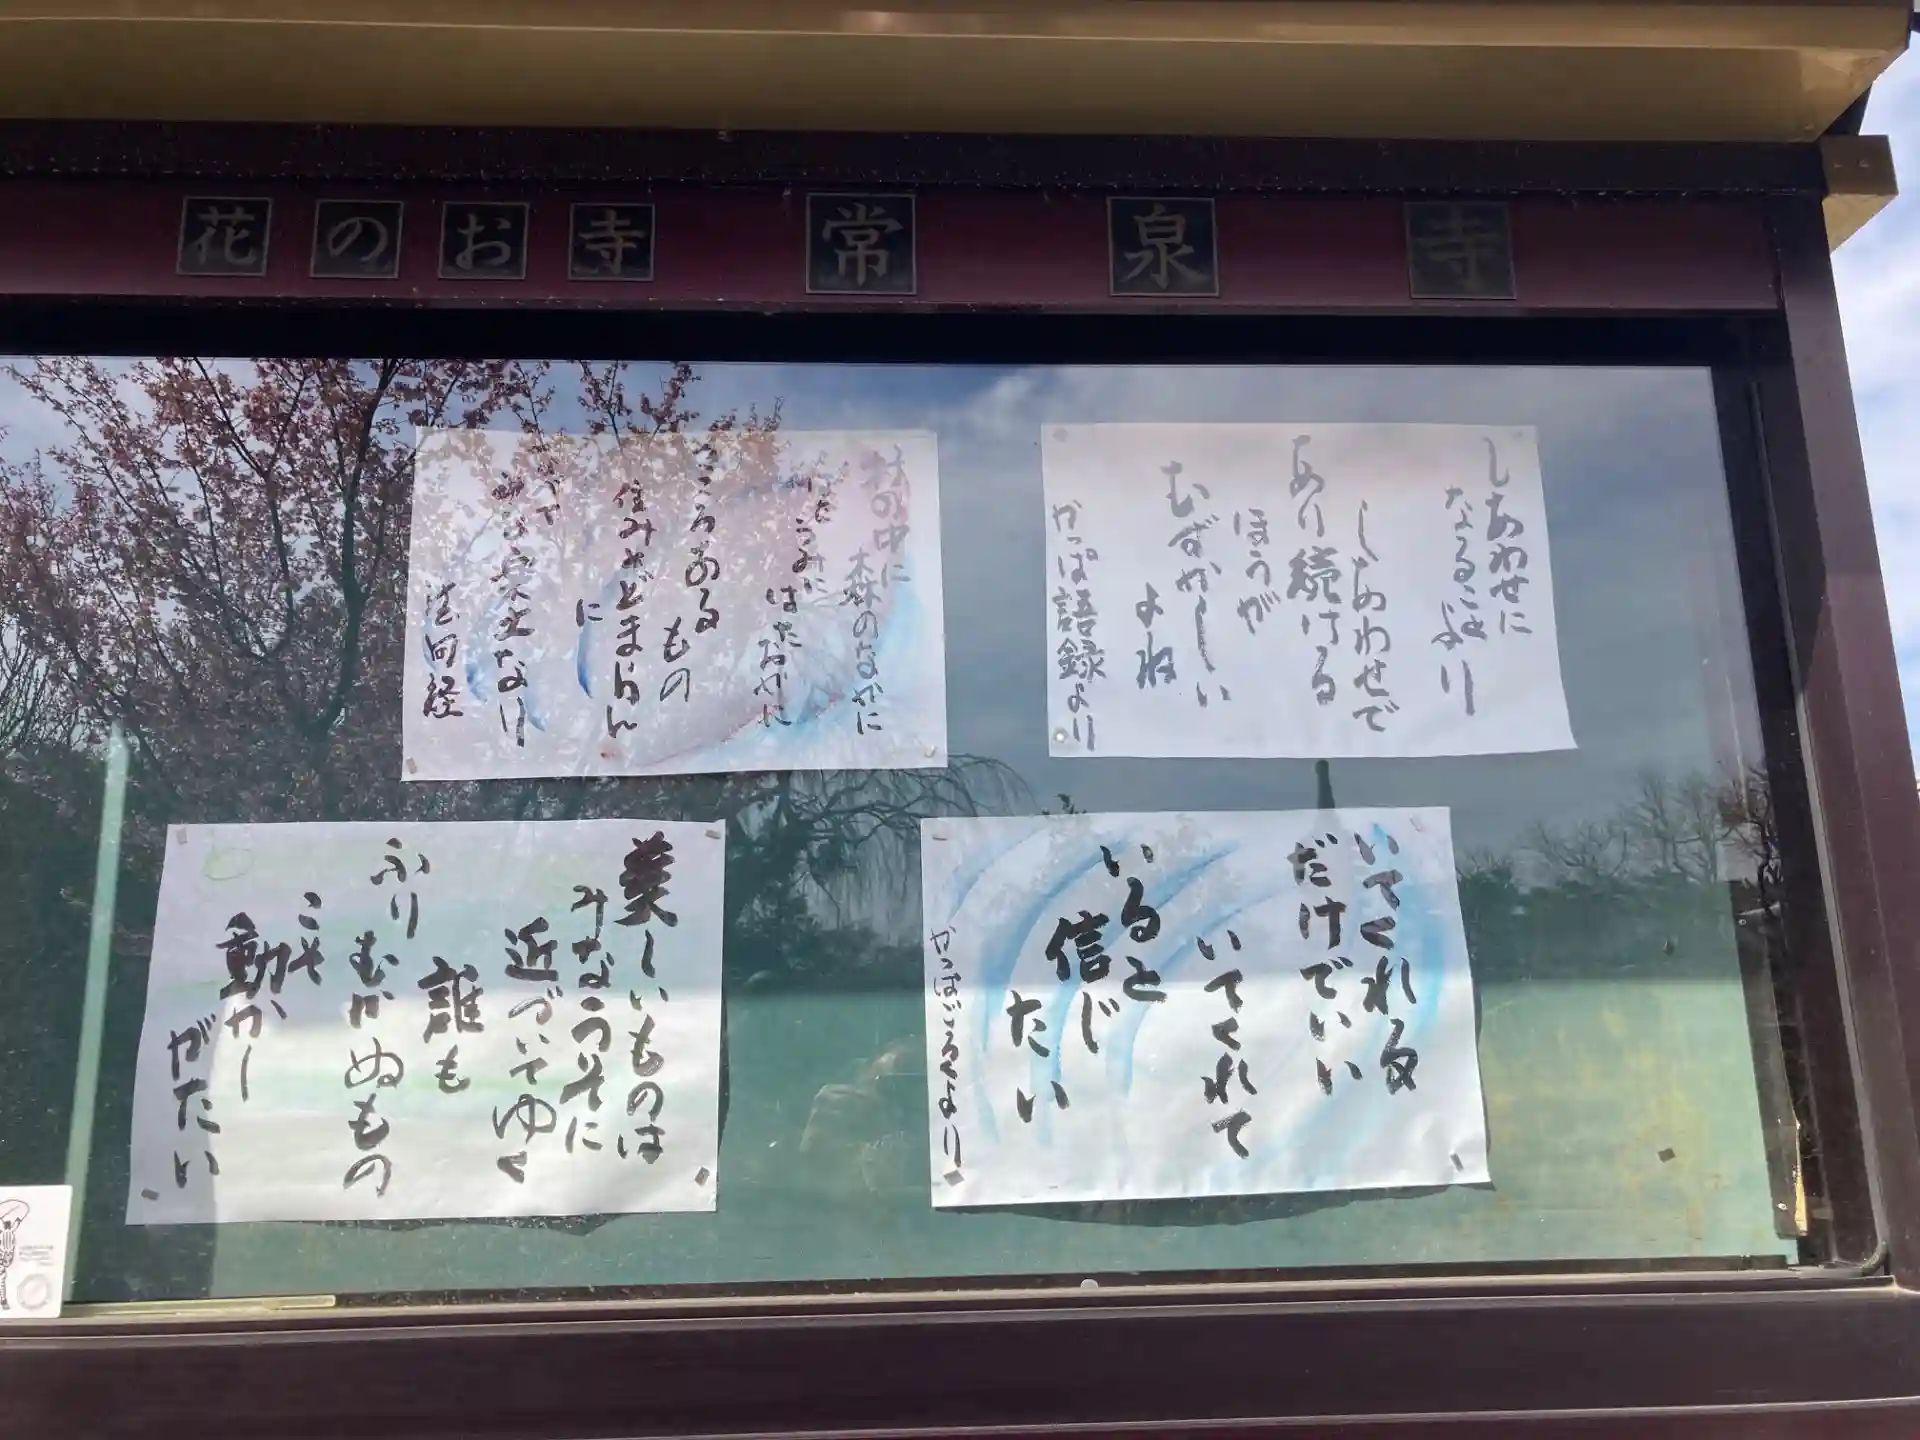 花のお寺 常泉寺
しあわせに
なることより
しあわせで
あり続ける
ほうが
むずかしい
よね
かっぱ語録より
村の中に
森のなかに
はたうみに
はたおかに
こころある
もの
住みとどまらん
に
なべて
みな楽土なり
法句経
いてくれる
だけでいい
いてくれて
いると
信じ
たい
かっぱごろくより
美しいものは
みなうつそに
近づいてゆく
誰も
ふり
むかぬもの
こそ
動かし
がたい